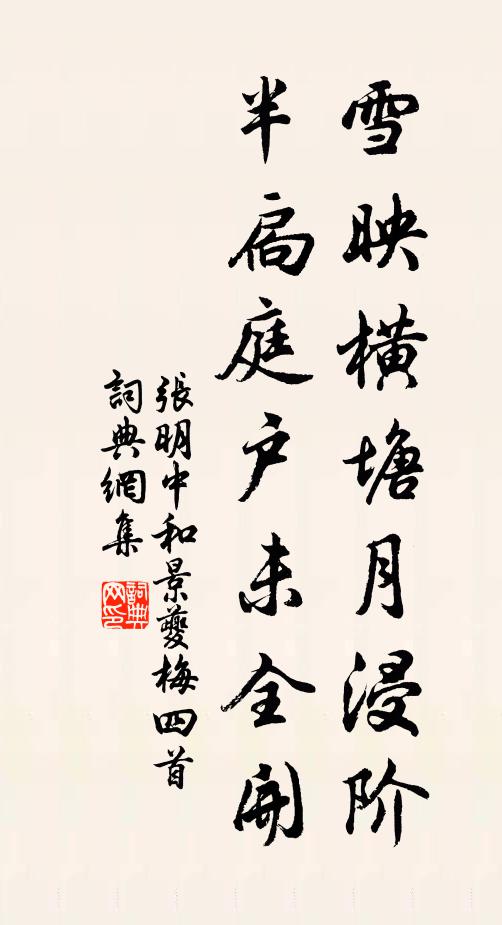 雪映橫塘月浸阶
半扃庭户未全開
張明中和景夔梅四首
詞典網集
詞典网印